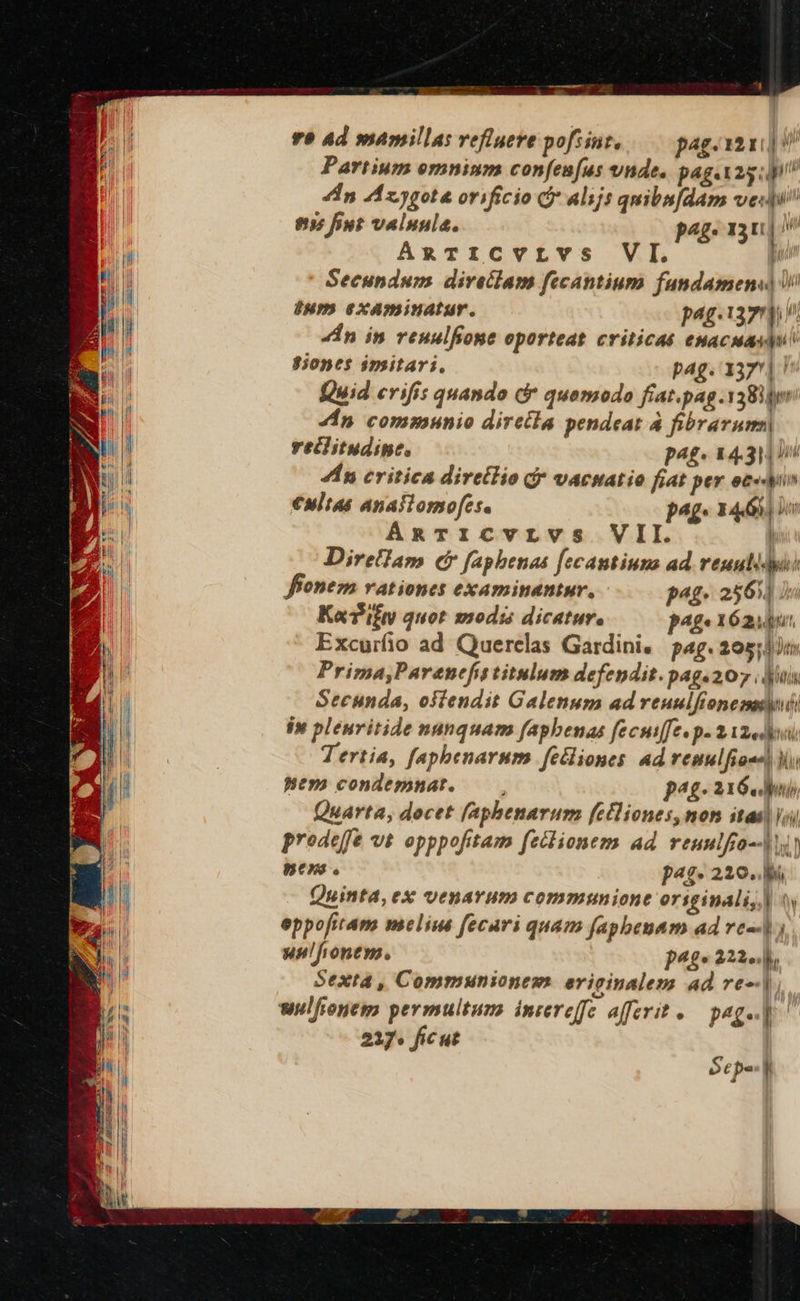 re ad mamillas refluere poſsint. pag. 121
Partium omnium conſenſus vnde. pag. 125
An Azygotæ orificio & alijs quibuſdam ve-
nis ſint valuulæ. pag. 131
ARTICVLVS VI.
Secundum directam ſecantium fundamen-
tum examinatur. pag. 137
An in reuulſione oporteat criticas euacua-
tiones imitari. pag. 137
Quid criſis quando & quomodo fiat. pag. 138
An communio directa pendeat à fibrarum
rectitudine. pag. 143
An critica directio & vacuatio fiat per oc-
cultas anaſtomoſes. pag. 146
ARTICVLVS VII.
Directam & ſaphenas ſecantium ad reuul-
ſionem rationes examinantur. pag. 256
Κατ' ἴξιν quot modis dicatur. pag. 162
Excurſio ad Querelas Gardini. pag. 205
Prima, Parænеſis titulum defendit. pag. 207
Secunda, oſtendit Galenum ad reuulſionem
in pleuritide nunquam ſaphenas ſecuiſſe. p. 212
Tertia, ſaphenarum ſectiones ad reuulſio-
nem condemnat. pag. 216
Quarta, docet ſaphenarum ſectiones, non ita
prodeſſe vt opppoſitam ſectionem ad reuulſio-
nem. pag. 220
Quinta, ex venarum communione originali,
oppoſitam melius ſecari quam ſaphenam ad re-
uulſionem. pag. 222
Sexta, Communionem originalem ad re-
uulſionem permultum intereſſe aſſerit. pag.
227. ſicut
Sep-